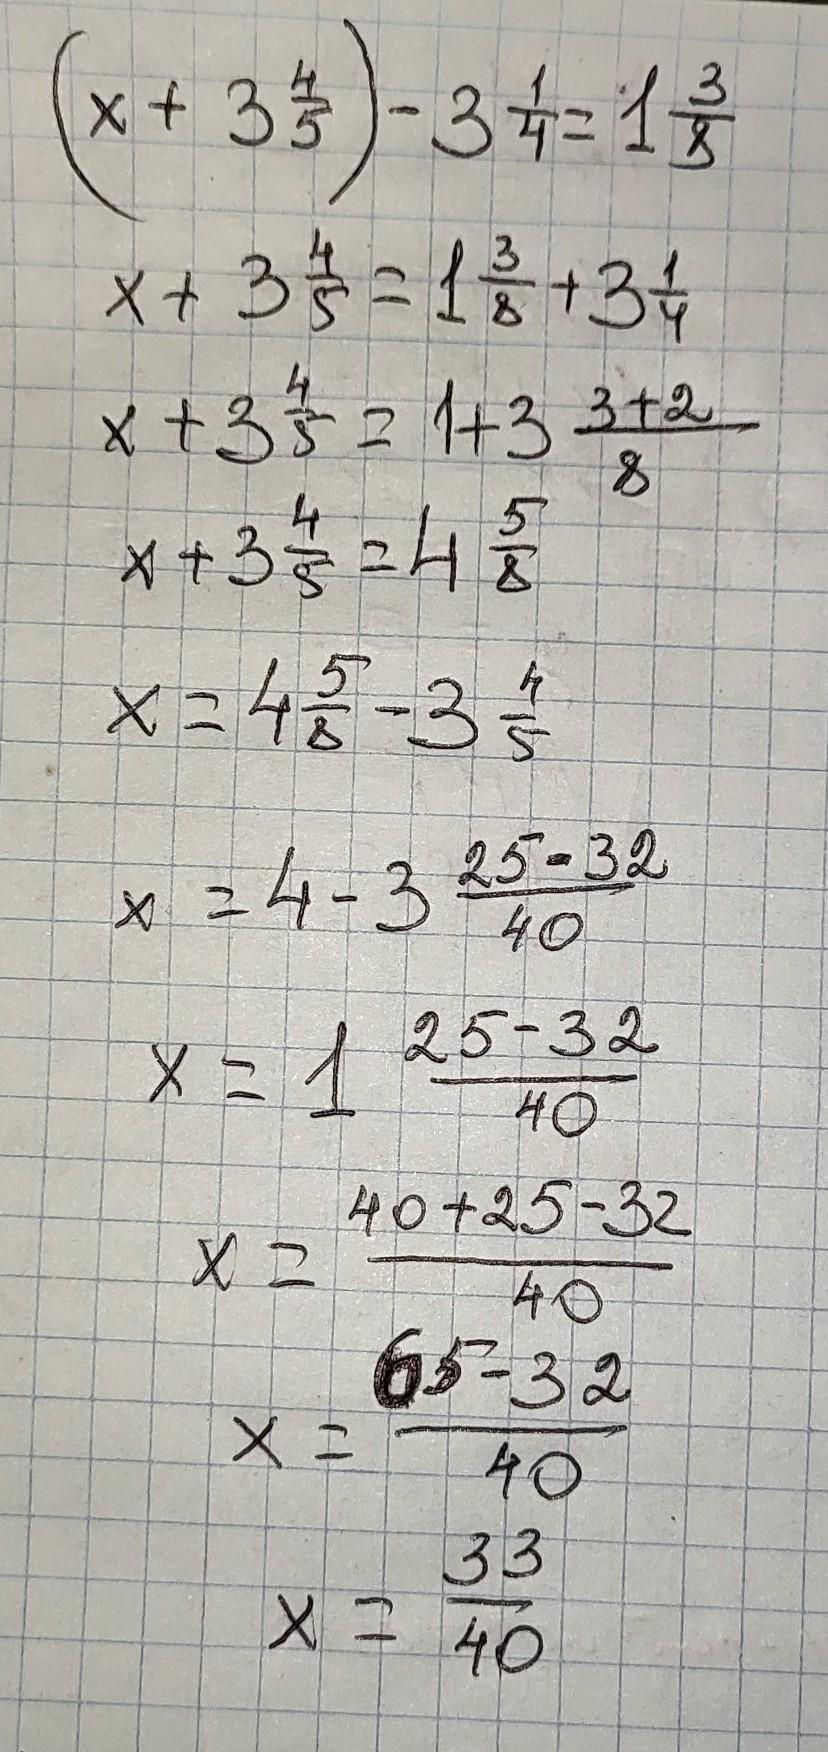 (x + 3 4/5) - 3 1/4 = 1 3/8
x + 3 4/5 = 1 3/8 + 3 1/4
x + 3 4/5 = 1+3 (3+2)/8
x + 3 4/5 = 4 5/8
x = 4 5/8 - 3 4/5
x = 4 - 3 (25-32)/40
x = 1 (25-32)/40
x = (40+25-32)/40
x = (65-32)/40
x = 33/40